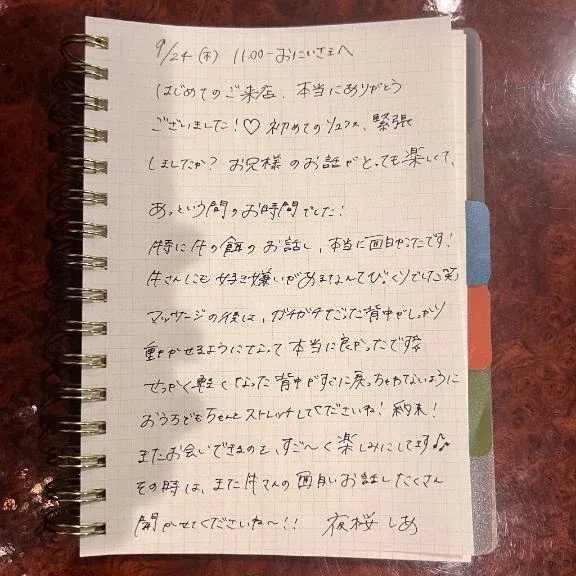 9/24(木) 11:00〜おにいさまへ
はじめてのご来店、本当にありがとう
ございました!♡ 初めてのリユファ、緊張
しましたか? お兄様のお話がとっても楽しくて、
あっという間のお時間でした!
特に牛の餌のお話し、本当に面白かったです!
牛さんにも好き嫌いがあるなんてびっくりでした笑)
マッサージの後は、ガチガチだった背中がしっかり
動かせるようになって本当に良かったです☆
せっかく軽くなった背中がすぐに戻っちゃわないように
おうちでもちゃんとストレッチしてくださいね! 約束!
またお会いできるのを、すご〜く楽しみにしてます♪
その時は、また牛さんの面白いお話したくさん
聞かせてくださいね〜!! 夜桜しあ